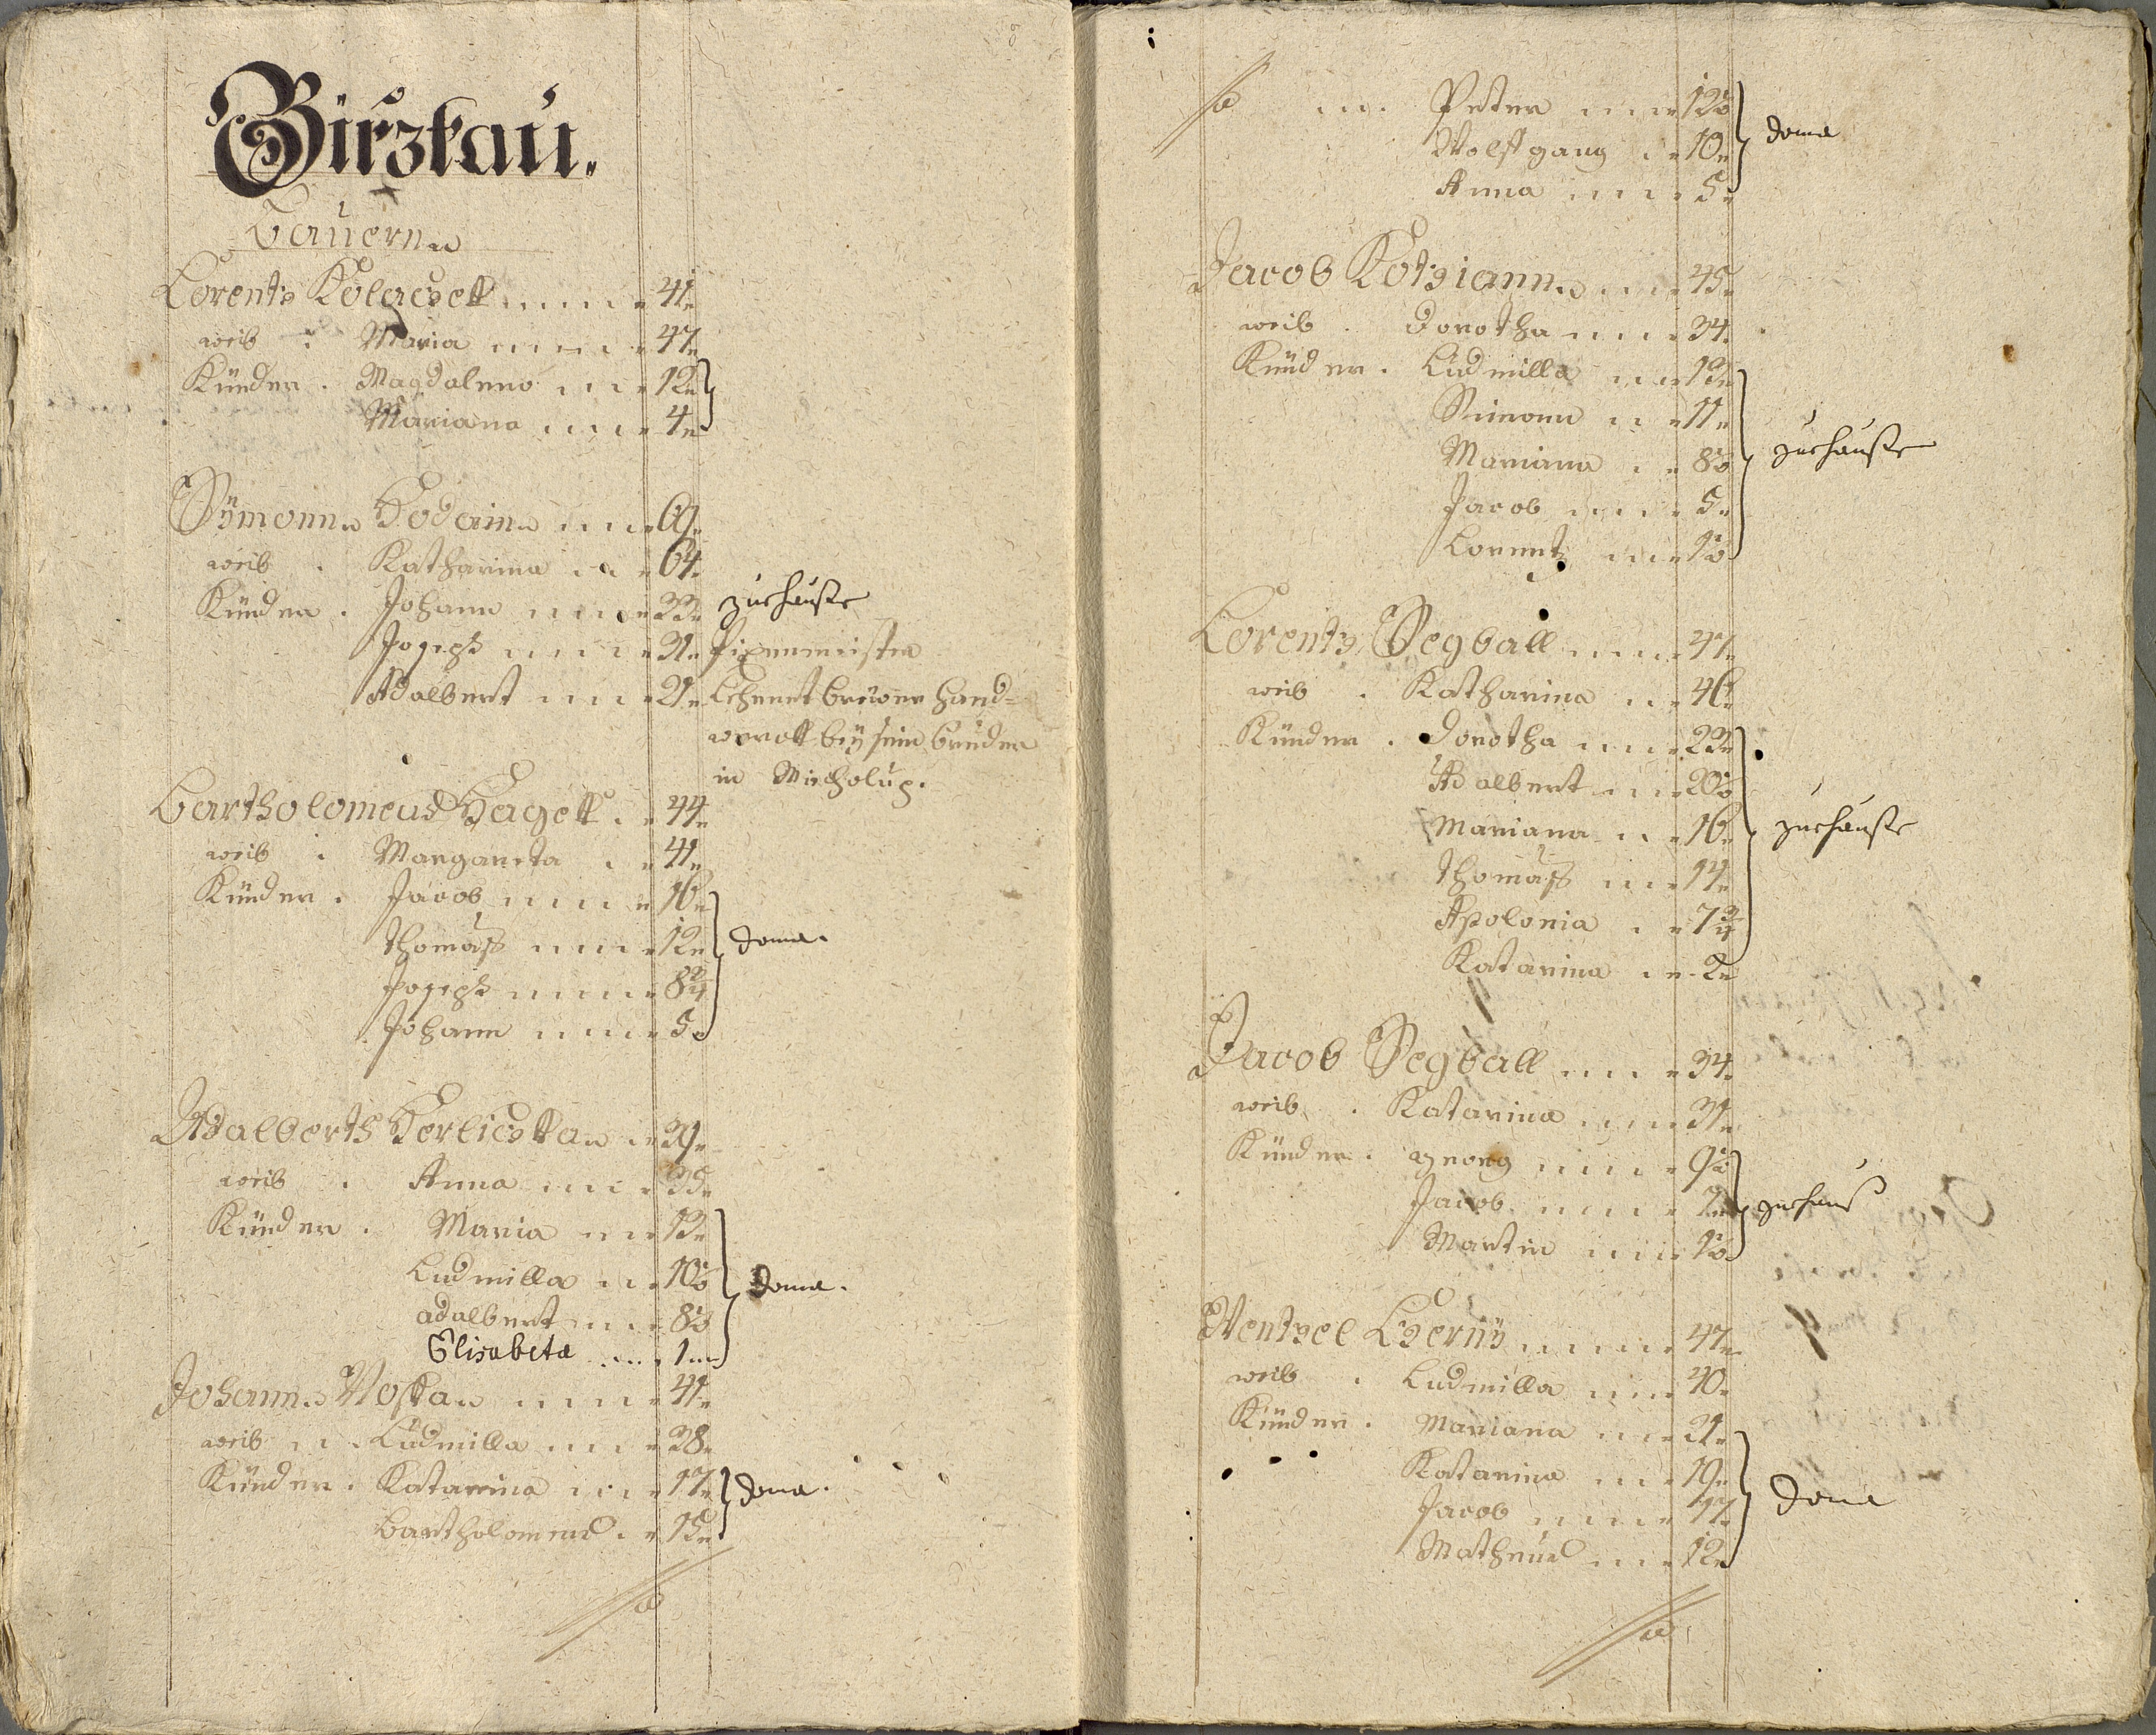 Girzkau.
Bauern
Lorentz Kolaczek 41
weib Maria 47
Künder Magdalena 12
Mariana 4
Symonn Hodain 69
weib Katharina 64
Künder Johann 33 zurhauße
Joseph 31
Adalbert 21 Lehrnet Brewer hand=
werck bey sein bruder
in Micholup.
Bartholomeus Hagek 44
weib Margareta 41
Künder Jacob 16
Thomaß 12 doma.
Joseph 8¾
Johann 5
Adalberth Herliczka 39
weib Anna 35
Künder Maria 13
Ludmilla 10½ doma.
adalbert 8½
Elisabeta 1
Johann Woska 41
weib Ludmilla 38
Künder Katarina 17 doma.
Bartholomeus 15
Peter 12½
Wolfgang 10 doma
Anna 5
Jacob Kotziann 45
weib Dorotha 34
Künder Ludmilla 13
Simonn 11
Mariana 8½ zurhauße
Jacob 5
Lorentz 1½
Lorentz Segball 47
weib Katharina 46
Künder Dorotha 23
Adalbert 20½
Mariana 16 zurhauße
Thomaß 14
Apolonia 7¾
Katarina 2
Jacob Segball 34
weib Katarina 31
Künder georg 9½
Jacob 7 zurhauß
Martin 1½
Wentzel Czerny 47
weib Ludmilla 40
Künder Mariana 21
Katarina 19
Jacob 17 doma
Matheus 12